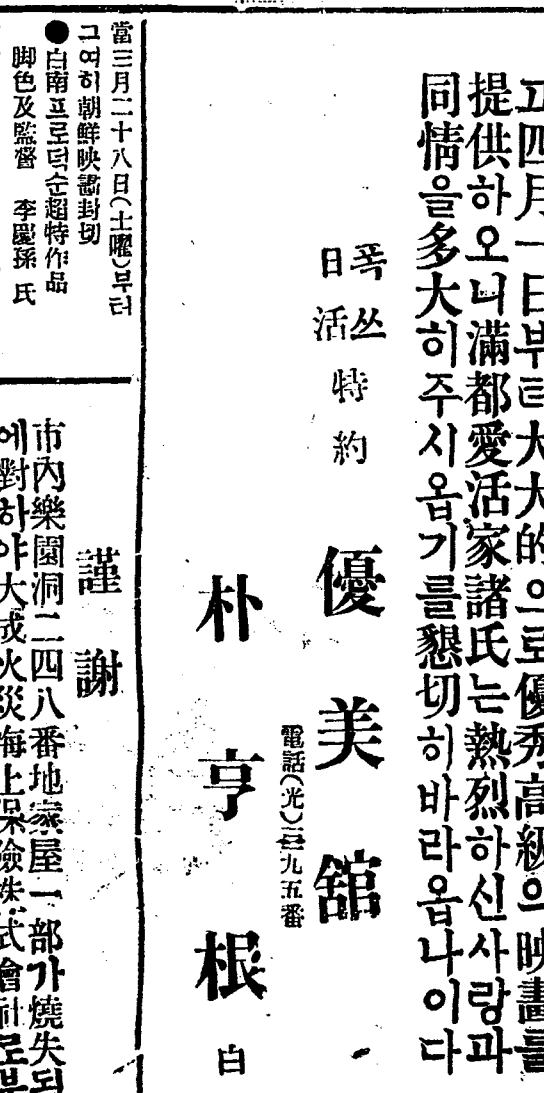 고四月一日부터大大的으로優秀高級의映畵를
提供하오니滿都愛活家諸氏는熱烈하신사랑과
同情을多大히주시옵기를懇切히바라옵나이다
폭쓰
日活
特約
優美舘
電話(光)三九五番
朴亨根 白
當三月二十八日(土曜)부터
그여히朝鮮映畵封切
●白南프로덕순超特作品
脚色及監督 李慶孫 氏
謹謝
市內樂園洞二四八番地家屋一部가燒失되
에對하야大成火災海上保險株式會社로부